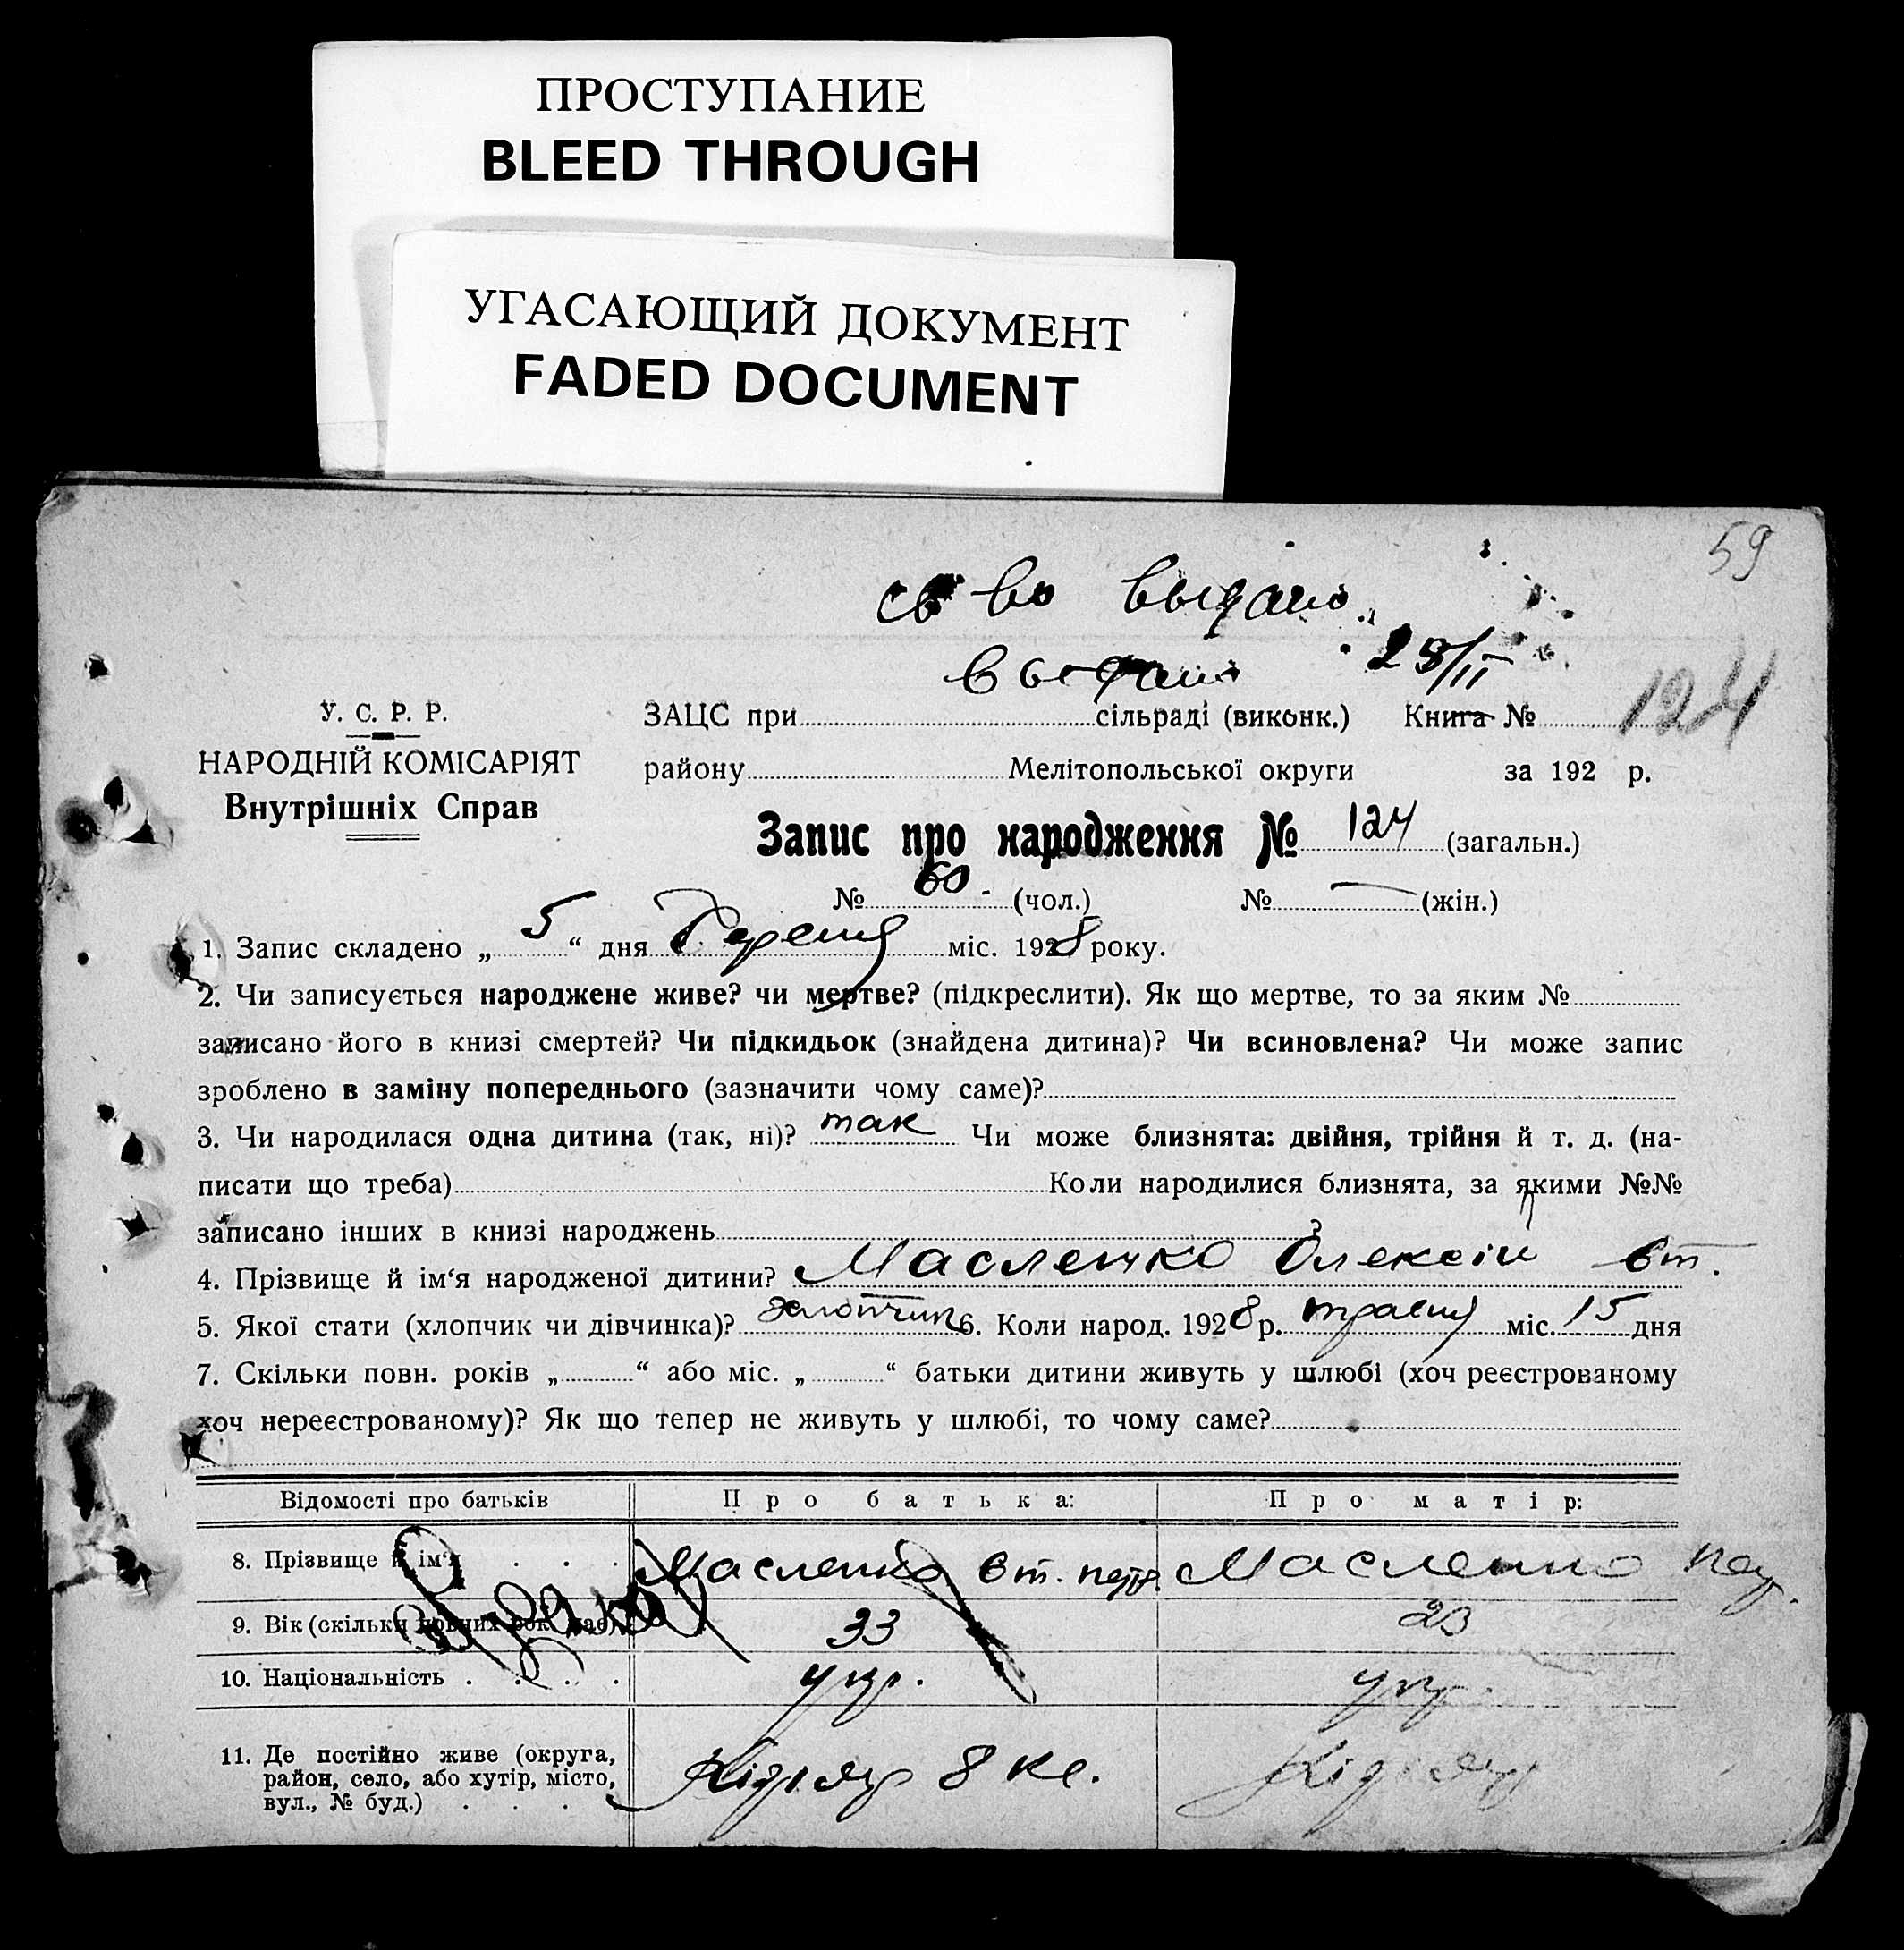 ПРОСТУПАНИЕ
BLEED THROUGH
УГАСАЮЩИЙ ДОКУМЕНТ
FADED DOCUMENT
59
св во выдано
выдано 28/II
У. С. Р. Р.
НАРОДНІЙ КОМІСАРІЯТ
Внутрішніх Справ
ЗАЦС при сільраді (виконк.) Книга № 124
району Мелітопольської округи за 192 р.
Запис про народження № 124 (загальн.)
№ 60 (чол.) № — (жін.)
1. Запис складено „ 5 “ дня Червня міс. 1928 року.
2. Чи записується народжене живе? чи мертве? (підкреслити). Як що мертве, то за яким №
записано його в книзі смертей? Чи підкидьок (знайдена дитина)? Чи всиновлена? Чи може запис
зроблено в заміну попереднього (зазначити чому саме)?
3. Чи народилася одна дитина (так, ні)? так Чи може близнята: двійня, трійня й т. д. (на-
писати що треба) Коли народилися близнята, за якими №№
записано інших в книзі народжень ?
4. Прізвище й ім‘я народженої дитини? Масленко Олексій Вт.
5. Якої стати (хлопчик чи дівчинка)? хлопчик 6. Коли народ. 1928 р. травня міс. 15 дня
7. Скільки повн. років „ “ або міс. „ “ батьки дитини живуть у шлюбі (хоч реєстрованому
хоч нереєстрованому)? Як що тепер не живуть у шлюбі, то чому саме?
Відомості про батьків Про батька: Про матір:
8. Прізвище й ім‘я . . . Масленко Вт. Масленко
9. Вік (скільки повних рок. має) 33 23
10. Національність . . . . укр. укр.
11. Де постійно живе (округа,
район, село, або хутір, місто,
вул., № буд.) . . . .